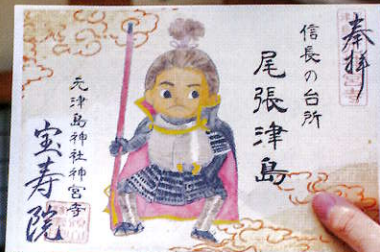 奉拝
信長の台所
尾張津島
元津島神社神宮寺
宝寿院